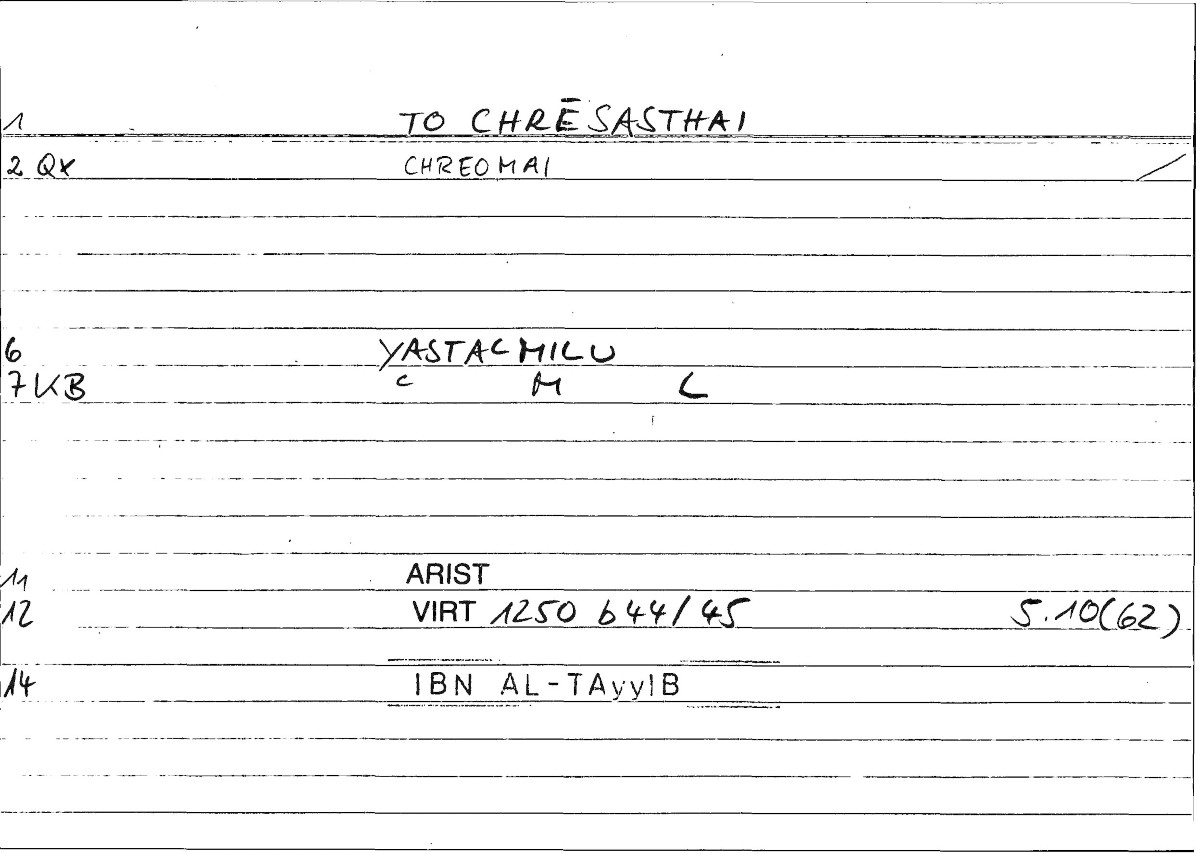 1 TO CHRĒSASTHAI
2 QX CHREOMAI /
6 YASTAcMILU
7 KB c M L
11 ARIST
12 VIRT 1250 b44/45 5.10(62)
14 IBN AL-TAyyIB